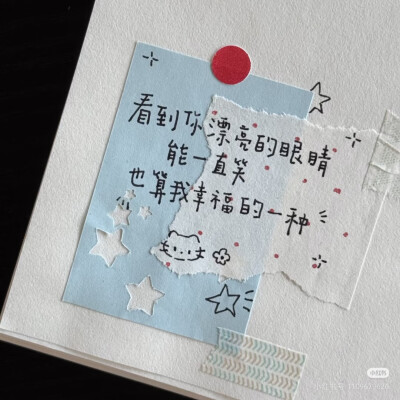 看到你漂亮的眼睛
能一直笑
也算我幸福的一种
小红书